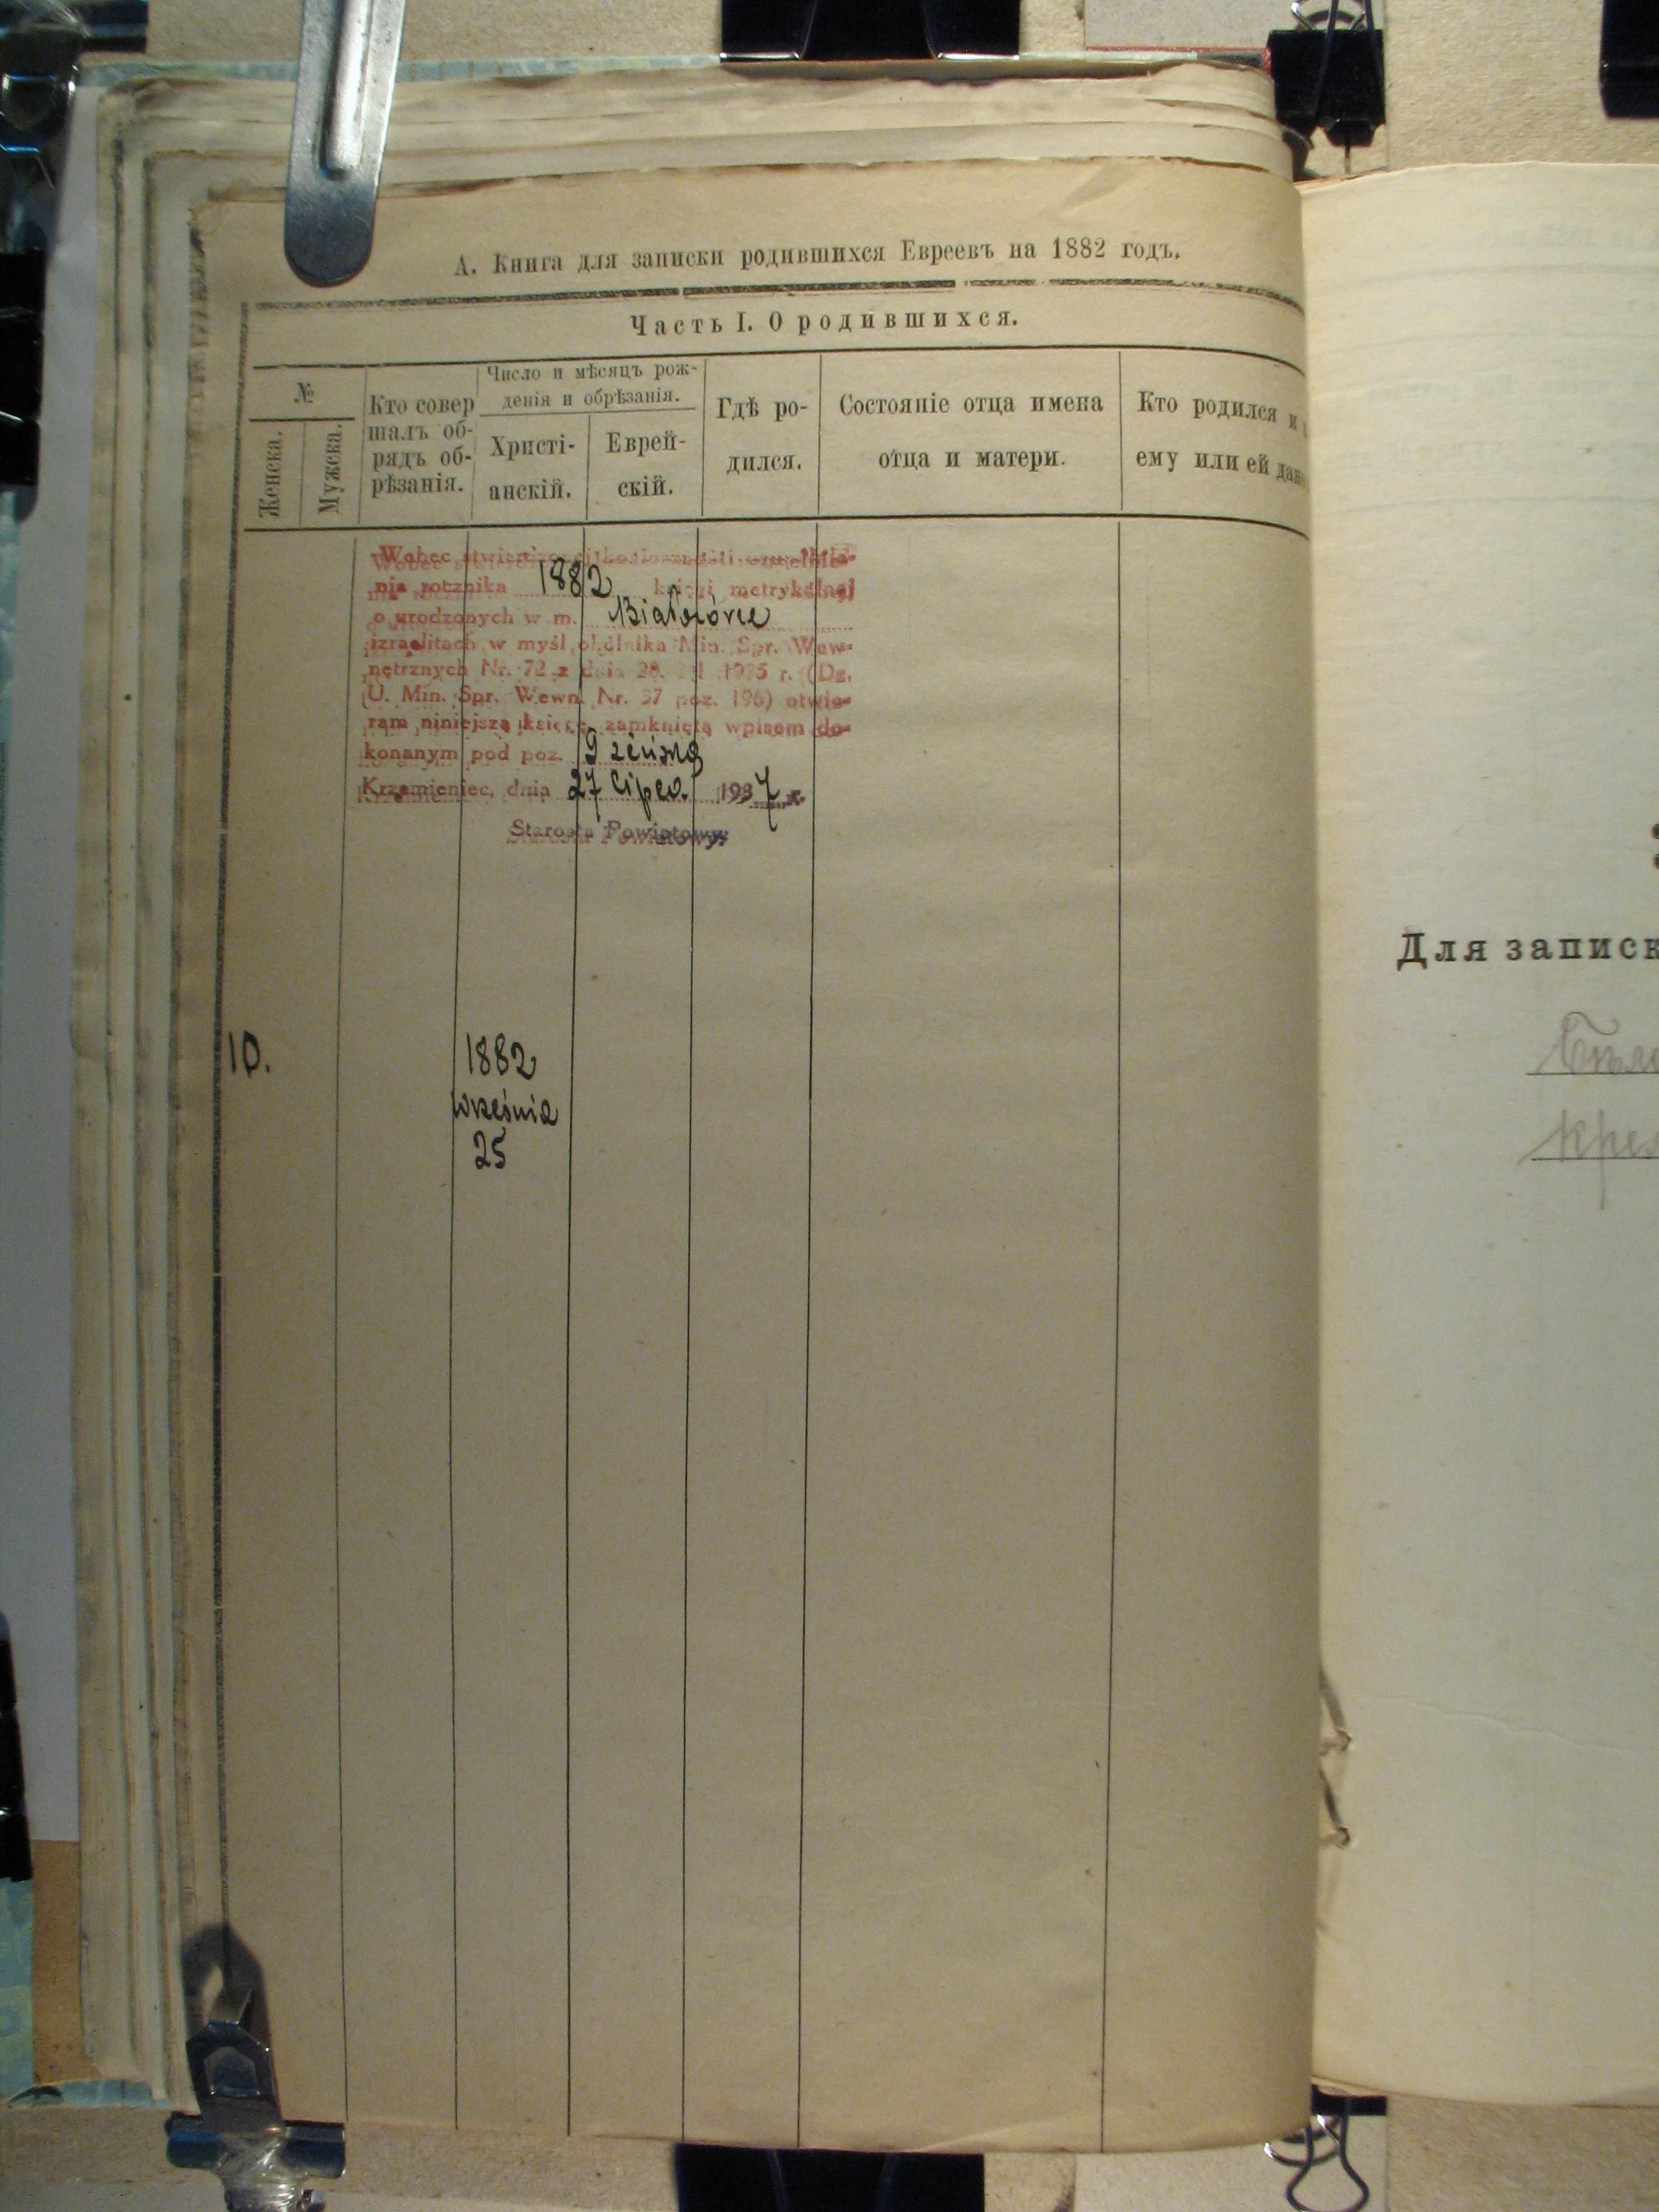 А. Книга для записки родившихся Евреевъ на 1882 годъ.
Часть I. О родившихся.
№
Женска.
Мужска.
Кто совер
шалъ об-
рядъ об-
рѣзанія.
Число и мѣсяцъ рож-
денія и обрѣзанія.
Христі-
анскій.
Еврей-
скій.
Гдѣ ро-
дился.
Состояніе отца имена
отца и матери.
Кто родился и
ему или ей дано
Wobec
nia rocznika 1882 księgi metrykalnej
o urodzonych w m. Białozórce
izraelitach w myśl okólnika Min. Spr. Wew-
nętrznych Nr. 72 z dnia 28. 1935 r. (Dz.
U. Min. Spr. Wewn. Nr. 37 poz. 196) otwie-
ram niniejszą księgę, zamkniętą wpisem do-
konanym pod poz. 9 żeńską
Krzemieniec, dnia 27 lipca 1937 r.
Starosta Powiatowy:
10.
1882
Września
25
Для записк
Бѣло
Крем